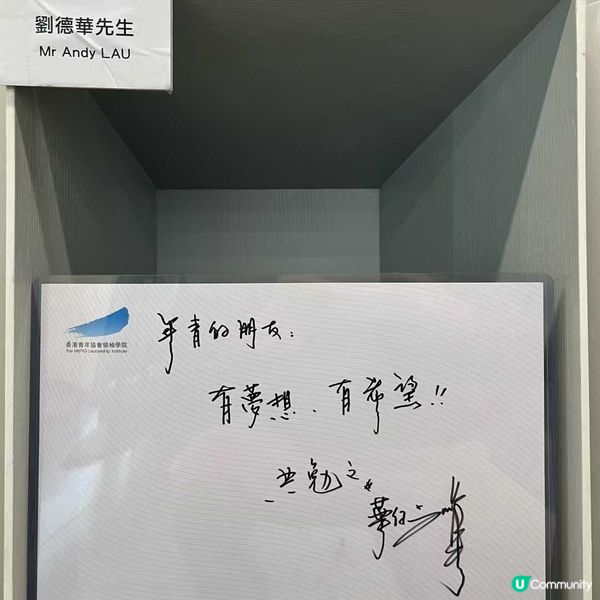 劉德華先生
Mr Andy LAU
香港青年協會領袖學院
The HKFYG Leadership Institute
年青的朋友：
有夢想、有希望!!
共勉之。
U Community